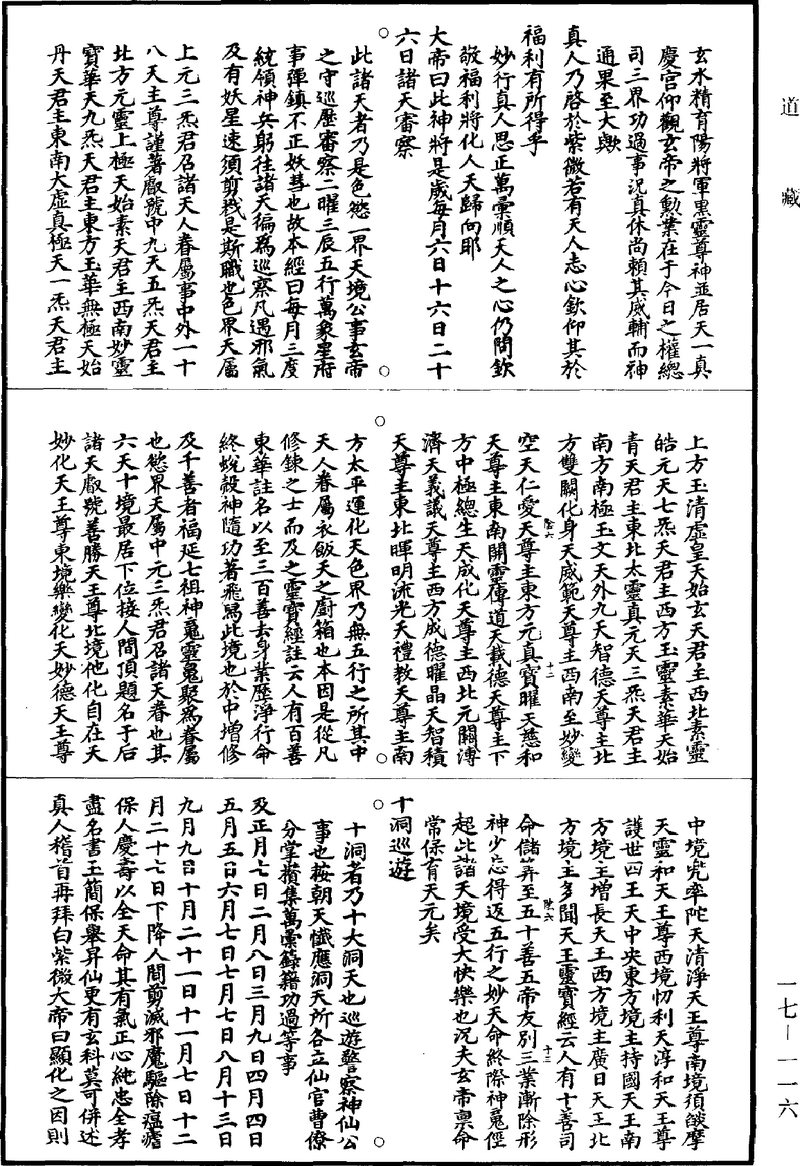 道藏
玄水精育陽將軍黑靈尊神並居天一真
慶宮仰觀玄帝之勳業在于今日之權總
司三界功過事況真休尚賴其威輔而神
通果至大歟
真人乃啓於紫微若有天人志心欽仰其於
福利有所得乎
妙行真人思正萬彙順天人之心仍問欽
敬福利將化人天歸向耶
大帝曰此神將是歲每月六日十六日二十
六日諸天審察
此諸天者乃是色慾一界天境公事玄帝
之守巡歷審察二曜三辰五行萬象星府
事彈鎮不正妖彗也故本經曰每月三度
統領神兵躬往諸天徧爲巡察凡遇邪氣
及有妖星速須剪戮是斯職也色界天屬
上元三炁君召諸天人眷屬事中外一十
八天主尊謹著厫號中九天五炁天君主
北方元靈上極天始素天君主西南妙靈
寶華天九炁天君主東方玉華無極天始
丹天君主東南大虛真極天一炁天君主
上方玉清虛皇天始玄天君主西北素靈
皓元天七炁天君主西方玉靈素華天始
青天君主東北太靈真元天三炁天君主
南方南極玉文天外九天智德天尊主北
方雙闕化身天威範天尊主西南至妙變
空天仁愛天尊主東方元真寶曜天慈和
天尊主東南開靈䧳道天載德天尊主下
方中極總生天成化天尊主西北元闢溥
濟天義議天尊主西方成德曜晶天智積
天尊主東北暉明流光天禮教天尊主南
方太平運化天色界乃無五行之所其中
天人眷屬衣飯天之厨箱也本因是從凡
修鍊之士而及之靈寶經註云人有百善
東華註名以至三百善去身業歷淨行命
終蛻殼神隨功著飛舄此境也於中增修
及千善者福延七祖神冤靈冤聚爲眷屬
也慾界天屬中元三炁君召諸天眷也其
六天十境最居下位接人間頂題名于后
諸天厫號善勝天王尊北境他化自在天
妙化天王尊東境樂變化天妙德天王尊
中境兜率陀天清淨天王尊南境須燄摩
天靈和天王尊西境忉利天淳和天王尊
護世四王天中央東方境主持國天王南
方境主增長天王西方境主廣目天王北
方境主多聞天王靈寶經云人有十善司
命儲筭至五十善五帝友別三業漸除形
神少忘得返五行之妙天命終際神冤徑
起此諸天境受大快樂也況夫玄帝禀命
常保育天元矣
十洞巡遊
十洞者乃十大洞天也巡遊警察神仙公
事也按朝天懺應洞天所各立仙官曹僚
分掌攢集萬彙錄籍功過等事
及正月七日二月八日三月九日四月四日
五月五日六月七日七月七日八月十三日
九月九日十月二十一日十一月七日十二
月二十七日下降人間剪滅邪魔驅除瘟㾮
保人慶壽以全天命其有氣正心純忠全孝
盡名書玉簡保舉昇仙更有玄科莫可併述
真人稽首再拜白紫微大帝曰顯化之因則
一七—一一六